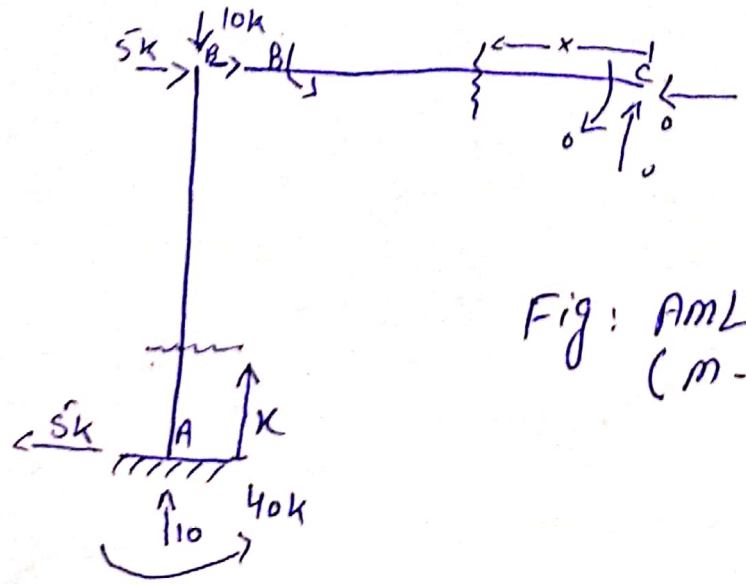 10k
5k B B
x
C
0 0
0
Fig: AML
(m-
5k A x
10 40k